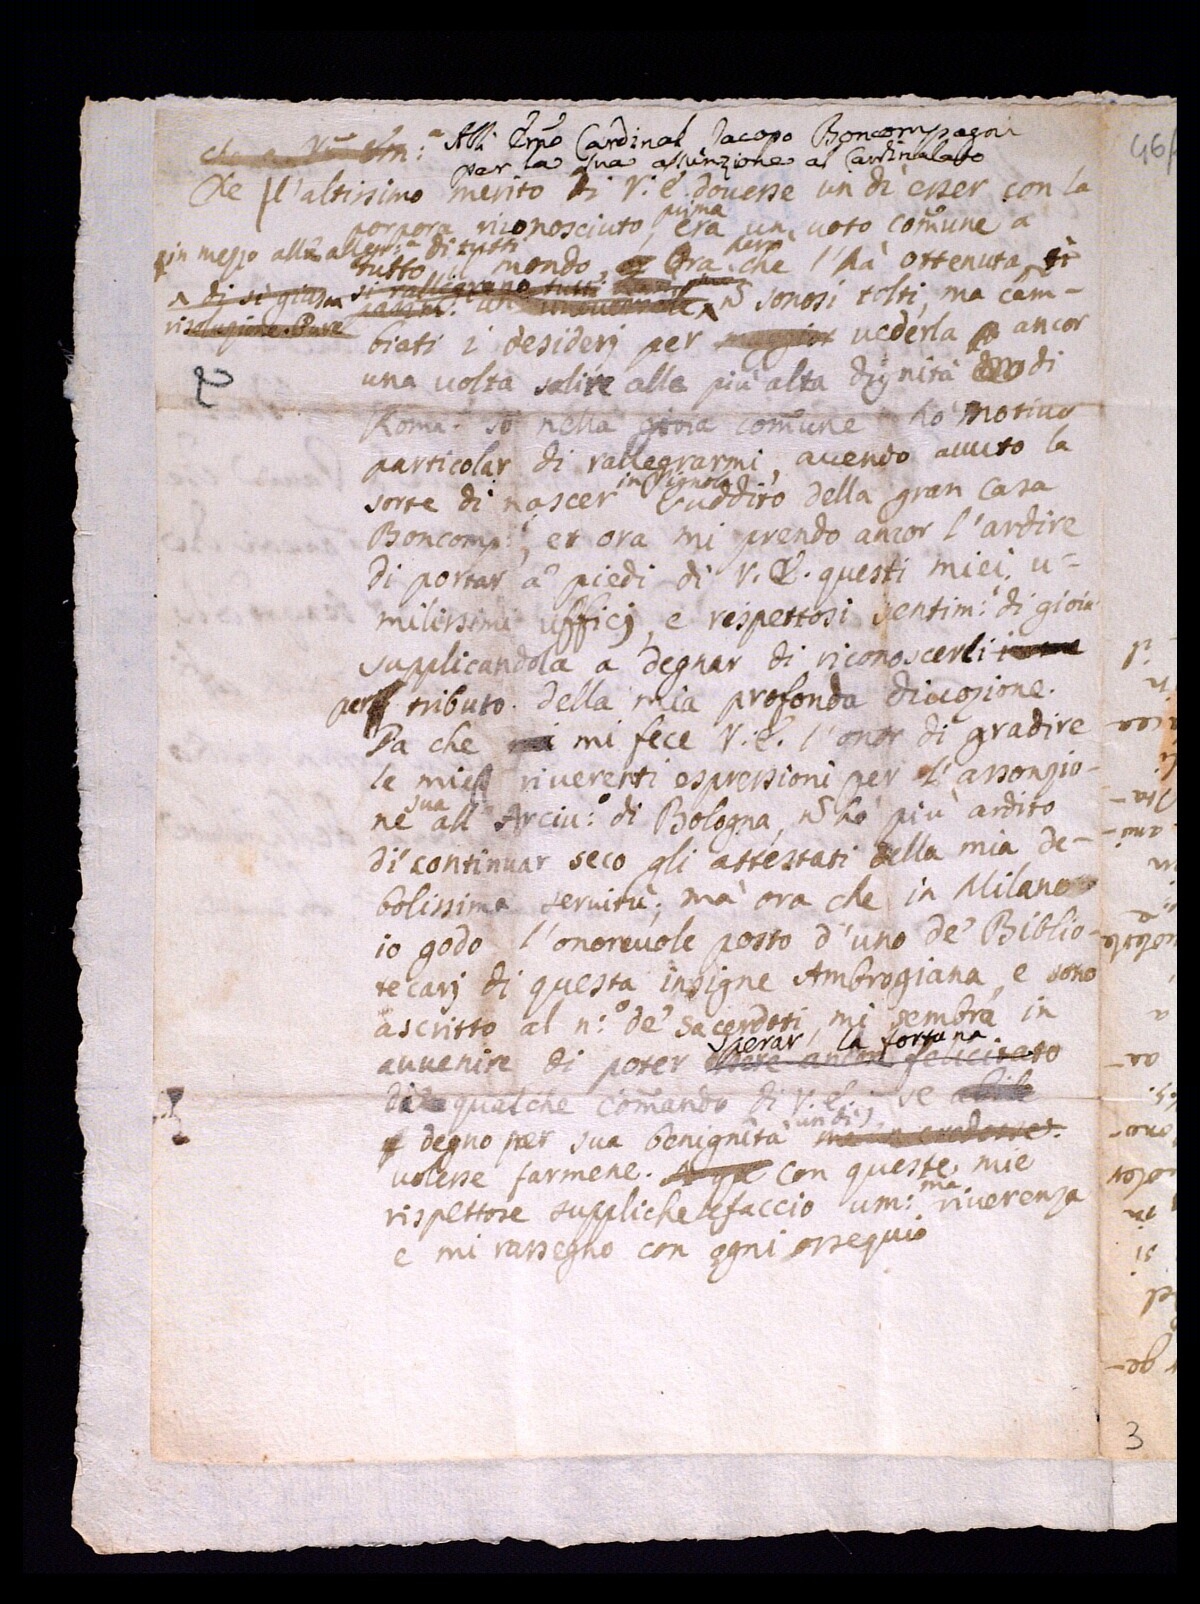 All' Em̃o Cardinal Jacopo Boncompagni
per la sua assunzione al Cardinalato
Che l'altissimo merito di V. E. dovesse un dì esser con la
porpora riconosciuto, prima era un voto com̃une a
in mezzo alle allegr.e di tutti
tutto il mondo, Ora però che l'hà ottenuta,
si rallegrano tutti
risoluzione
nõ sonosi tolti, ma cam-
biati i desiderj per vederla ancor
una volta salire alla più alta dignità di
Roma. Io nella gioia com̃une hò motivo
particolar di rallegrarmi, avendo avuto la
sorte di nascer in Vignola suddito della gran Casa
Boncomp.i, et ora mi prendo ancor l'ardire
di portar a' piedi di V. E. questi miei u-
milissimi ufficj, e rispettosi sentim.i di gioia
supplicandola a degnar di riconoscerli
per tributo della mia profonda divozione.
Da che mi fece V. E. l'onor di gradire
le mie riverenti espressioni per l'assonzio-
ne sua all' Arciv.o di Bologna, nõ hò più ardito
di continuar seco gli attestati della mia de-
bolissima servitù; mà ora che in Milano
io godo l'onorevole posto d'uno de' Biblio-
tecarj di questa insigne Ambrogiana, e sono
ascritto al n.o de' Sacerdoti, mi sembra in
avvenire di poter sperar la fortuna
ancor felicitato
di qualche com̃ando di V. E. se
degno per sua benignità
volesse farmene. con queste mie
rispettose suppliche le faccio um.ma riverenza
e mi rassegno con ogni ossequio
3